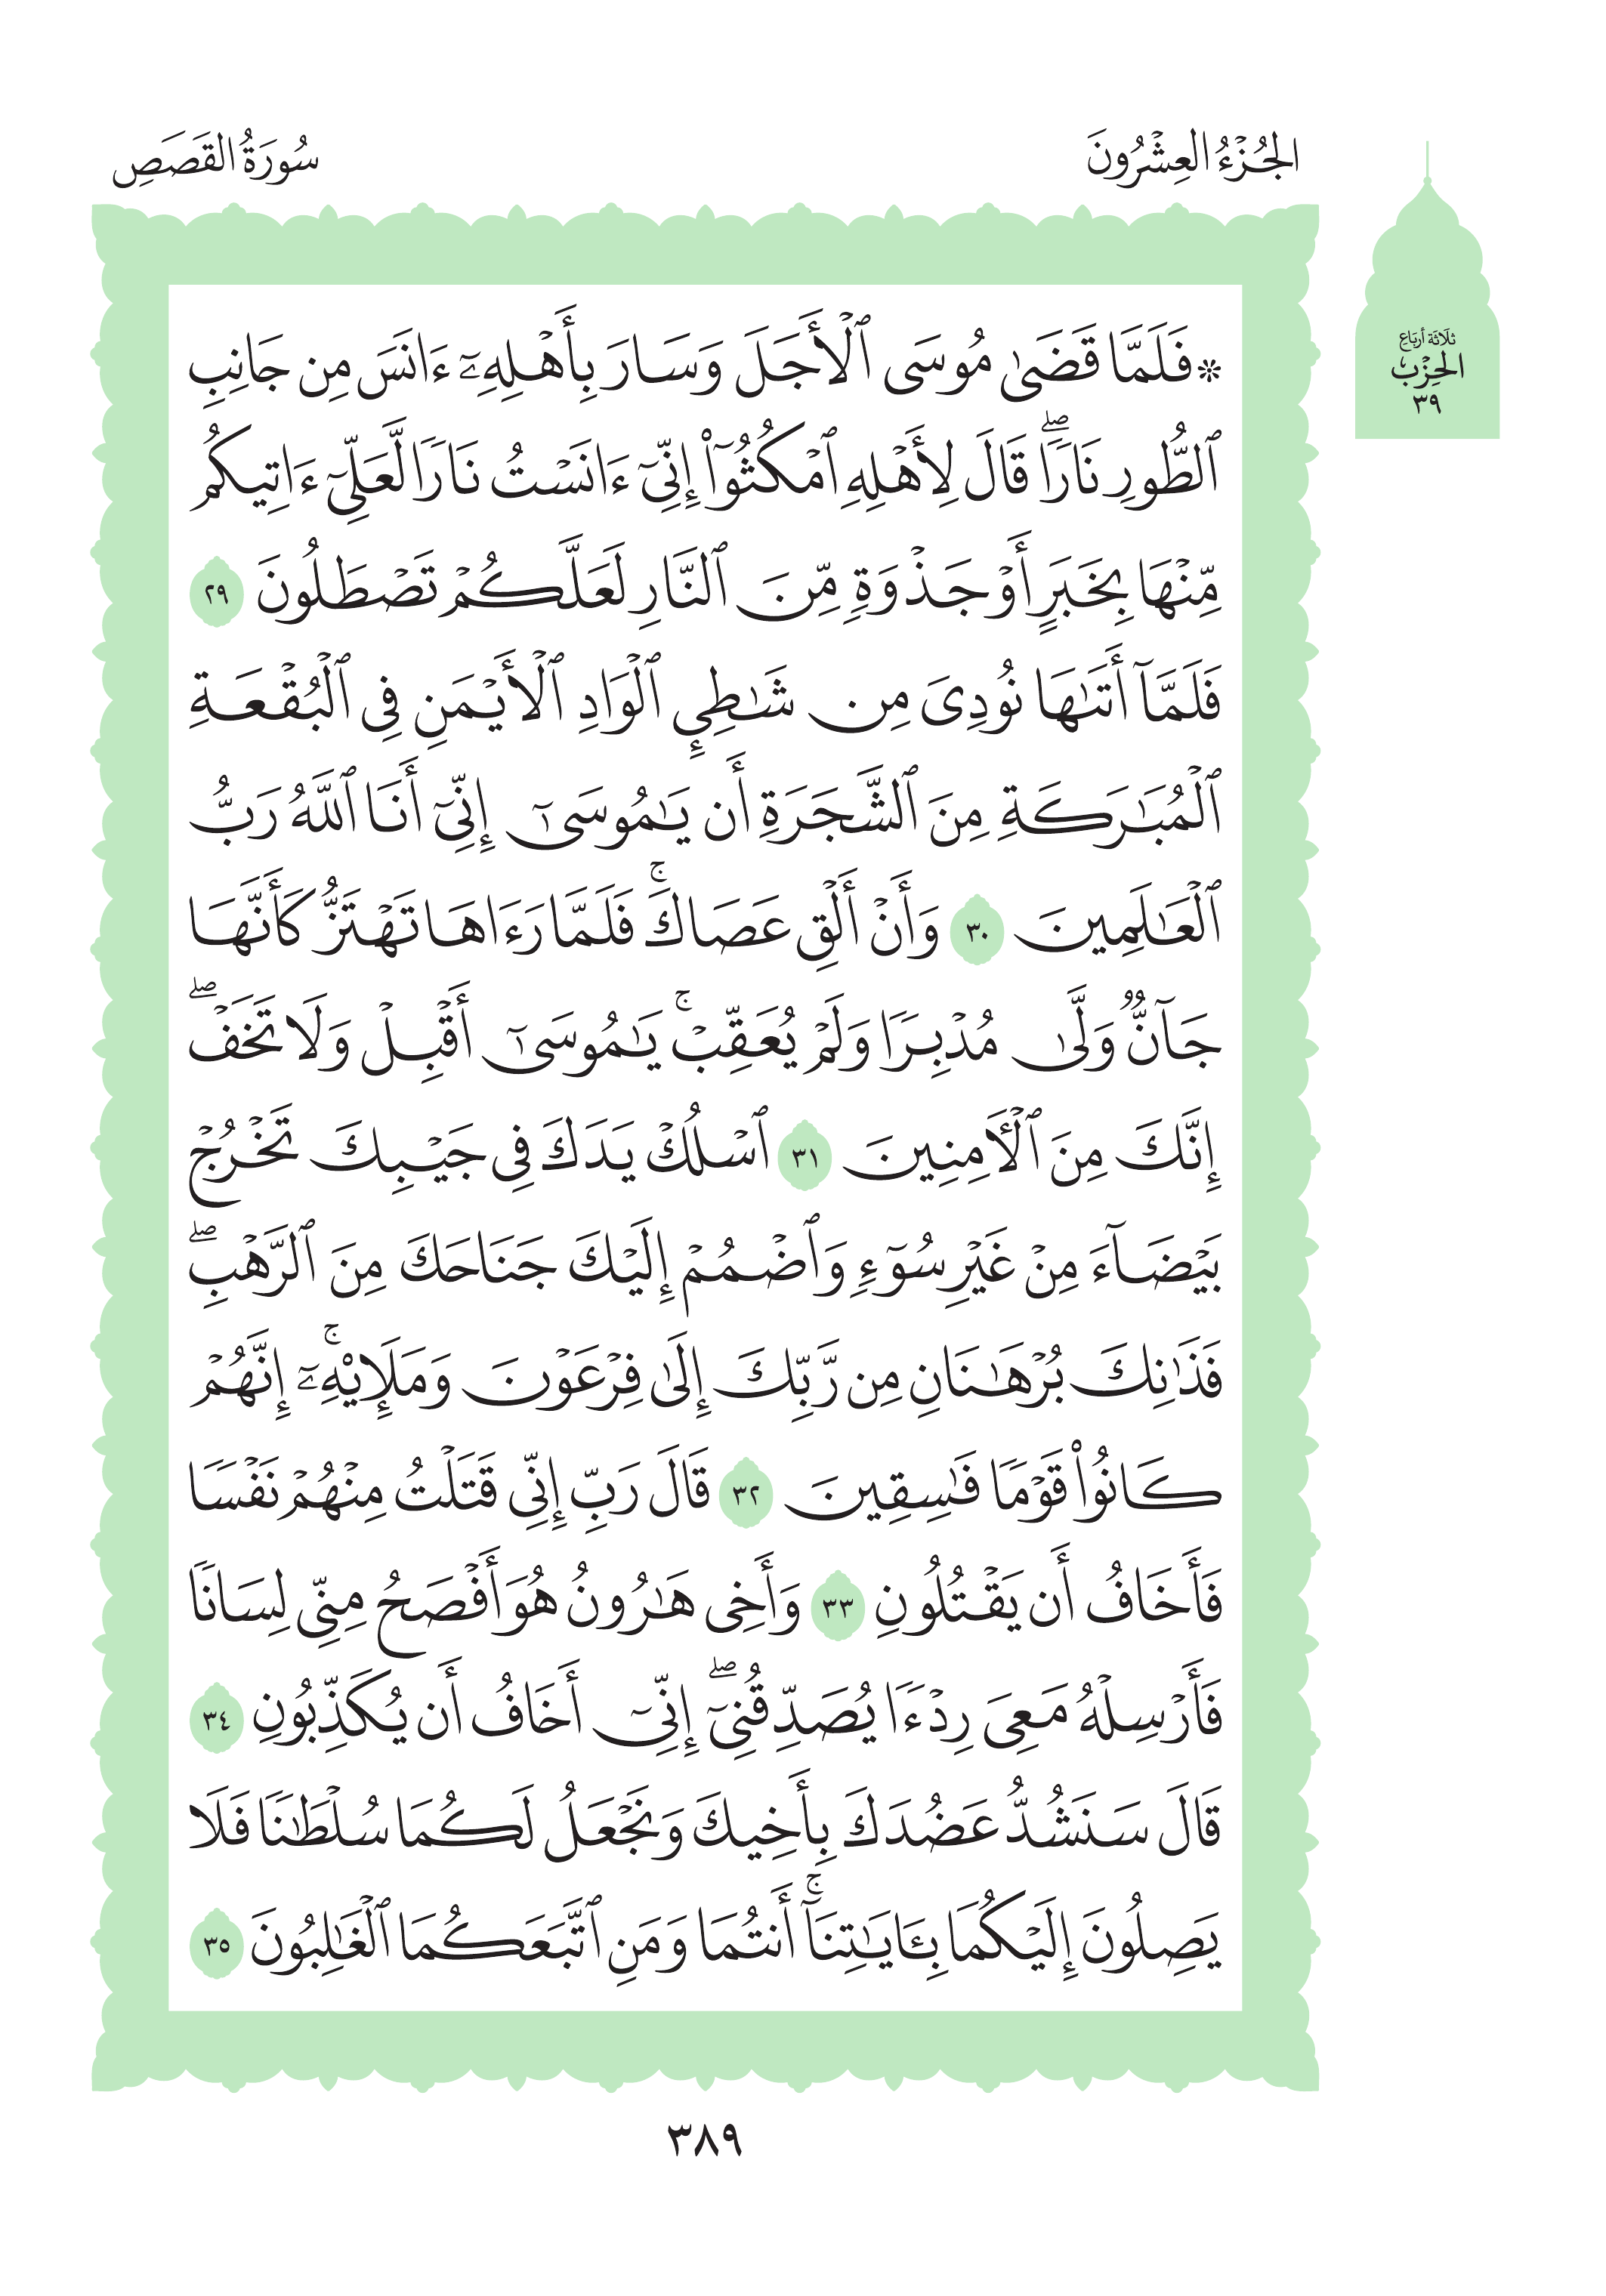 الجُزْءُ العِشْرُونَ
سُورَةُ القَصَصِ
ثلاثة أرباع
الحِزْب
٣٩
۞فَلَمَّا قَضَىٰ مُوسَى ٱلْأَجَلَ وَسَارَ بِأَهْلِهِۦٓ ءَانَسَ مِن جَانِبِ
ٱلطُّورِ نَارًاۖ قَالَ لِأَهْلِهِ ٱمْكُثُوٓا۟ إِنِّىٓ ءَانَسْتُ نَارًا لَّعَلِّىٓ ءَاتِيكُم
مِّنْهَا بِخَبَرٍ أَوْ جَذْوَةٍ مِّنَ ٱلنَّارِ لَعَلَّكُمْ تَصْطَلُونَ ٢٩
فَلَمَّآ أَتَىٰهَا نُودِىَ مِن شَـٰطِئِ ٱلْوَادِ ٱلْأَيْمَنِ فِى ٱلْبُقْعَةِ
ٱلْمُبَـٰرَكَةِ مِنَ ٱلشَّجَرَةِ أَن يَـٰمُوسَىٰٓ إِنِّىٓ أَنَا ٱللَّهُ رَبُّ
ٱلْعَـٰلَمِينَ ٣٠ وَأَنْ أَلْقِ عَصَاكَۚ فَلَمَّا رَءَاهَا تَهْتَزُّ كَأَنَّهَا
جَآنٌّ وَلَّىٰ مُدْبِرًا وَلَمْ يُعَقِّبْۚ يَـٰمُوسَىٰٓ أَقْبِلْ وَلَا تَخَفْۖ
إِنَّكَ مِنَ ٱلْـَٔامِنِينَ ٣١ ٱسْلُكْ يَدَكَ فِى جَيْبِكَ تَخْرُجْ
بَيْضَآءَ مِنْ غَيْرِ سُوٓءٍ وَٱضْمُمْ إِلَيْكَ جَنَاحَكَ مِنَ ٱلرَّهْبِۖ
فَذَٰنِكَ بُرْهَـٰنَانِ مِن رَّبِّكَ إِلَىٰ فِرْعَوْنَ وَمَلَإِي۟هِۦٓۚ إِنَّهُمْ
كَانُوا۟ قَوْمًا فَـٰسِقِينَ ٣٢ قَالَ رَبِّ إِنِّى قَتَلْتُ مِنْهُمْ نَفْسًا
فَأَخَافُ أَن يَقْتُلُونِ ٣٣ وَأَخِى هَـٰرُونُ هُوَ أَفْصَحُ مِنِّى لِسَانًا
فَأَرْسِلْهُ مَعِىَ رِدْءًا يُصَدِّقُنِىٓۖ إِنِّىٓ أَخَافُ أَن يُكَذِّبُونِ ٣٤
قَالَ سَنَشُدُّ عَضُدَكَ بِأَخِيكَ وَنَجْعَلُ لَكُمَا سُلْطَـٰنًا فَلَا
يَصِلُونَ إِلَيْكُمَا بِـَٔايَـٰتِنَآۚ أَنتُمَا وَمَنِ ٱتَّبَعَكُمَا ٱلْغَـٰلِبُونَ ٣٥
٣٨٩